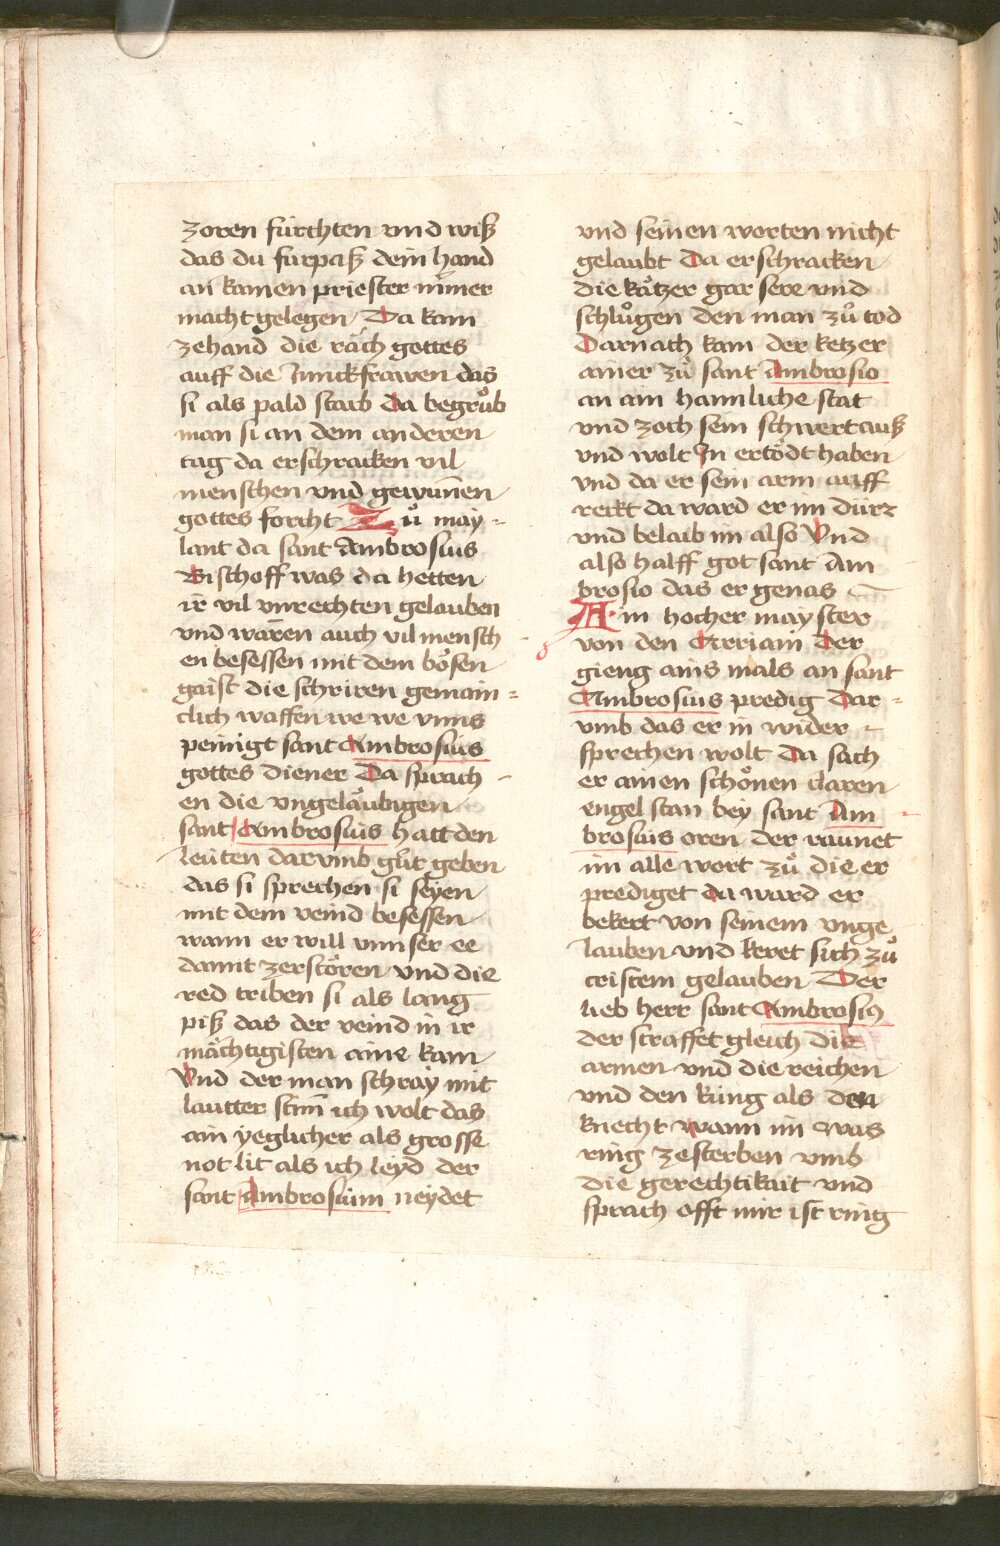 zoren fürchten vnd wiß
das du fürpaß dein hand
an kainen priester nimer
macht gelegen Da kam
zehand die räch gottes
auff die Junckfrawen das
si als pald starb da begrůb
man si an dem anderen
tag da erschracken vil
menschen vnd gewunen
gottes forcht Zů may=
lant da sant Ambrosius
Bischoff was da hetten
ir vil vnrechten gelauben
vnd waren auch vil mensch
en besessen mit dem bösen
gaist die schriren gemain=
clich waffen we we vnns
peinigt sant Ambrosius
gottes diener Da sprach
en die vngeläubigen
sant Ambrosius hatt den
leüten darvmb gůt geben
das si sprechen si seyen
mit dem veind besessen
wann er will vnnser ee
damit zerstören vnd die
red triben si als lang
piß das der veind in ir
mächtigisten aine kam
Vnd der man schray mit
lautter stim ich wolt das
ain yeglicher als grosse
not lit als ich leyd der
sant Ambrosium neydet
vnd seinen worten nicht
gelaubt Da erschracken
die kätzer gar sere vnd
schlůgen den man zů tod
Darnach kam der ketzer
ainer zů sant Ambrosio
an ain haimliche stat
vnd zoch sein schwert auß
vnd wolt Jn ertödt haben
vnd da er sein arm auff
reckt da ward er im dürr
vnd belaib im also Vnd
also halff got sant Am
brosio das er genas
Ain hocher mayster
von den Arriain Der
gieng ains mals an sant
Ambrosius predig Dar=
vmb das er in wider
sprechen wolt Da sach
er ainen schönen claren
engel stan bey sant Am
brosius oren der raunet
im alle wort zů die er
prediget da ward er
bekert von seinem vnge
lauben vnd keret sich zů
cristem gelauben Der
lieb herr sant Ambrosius
der straffet gleich die
armen vnd die reichen
vnd den küng als den
knecht wann im was
ring zesterben vmb
die gerechtikait vnd
sprach offt mir ist ring